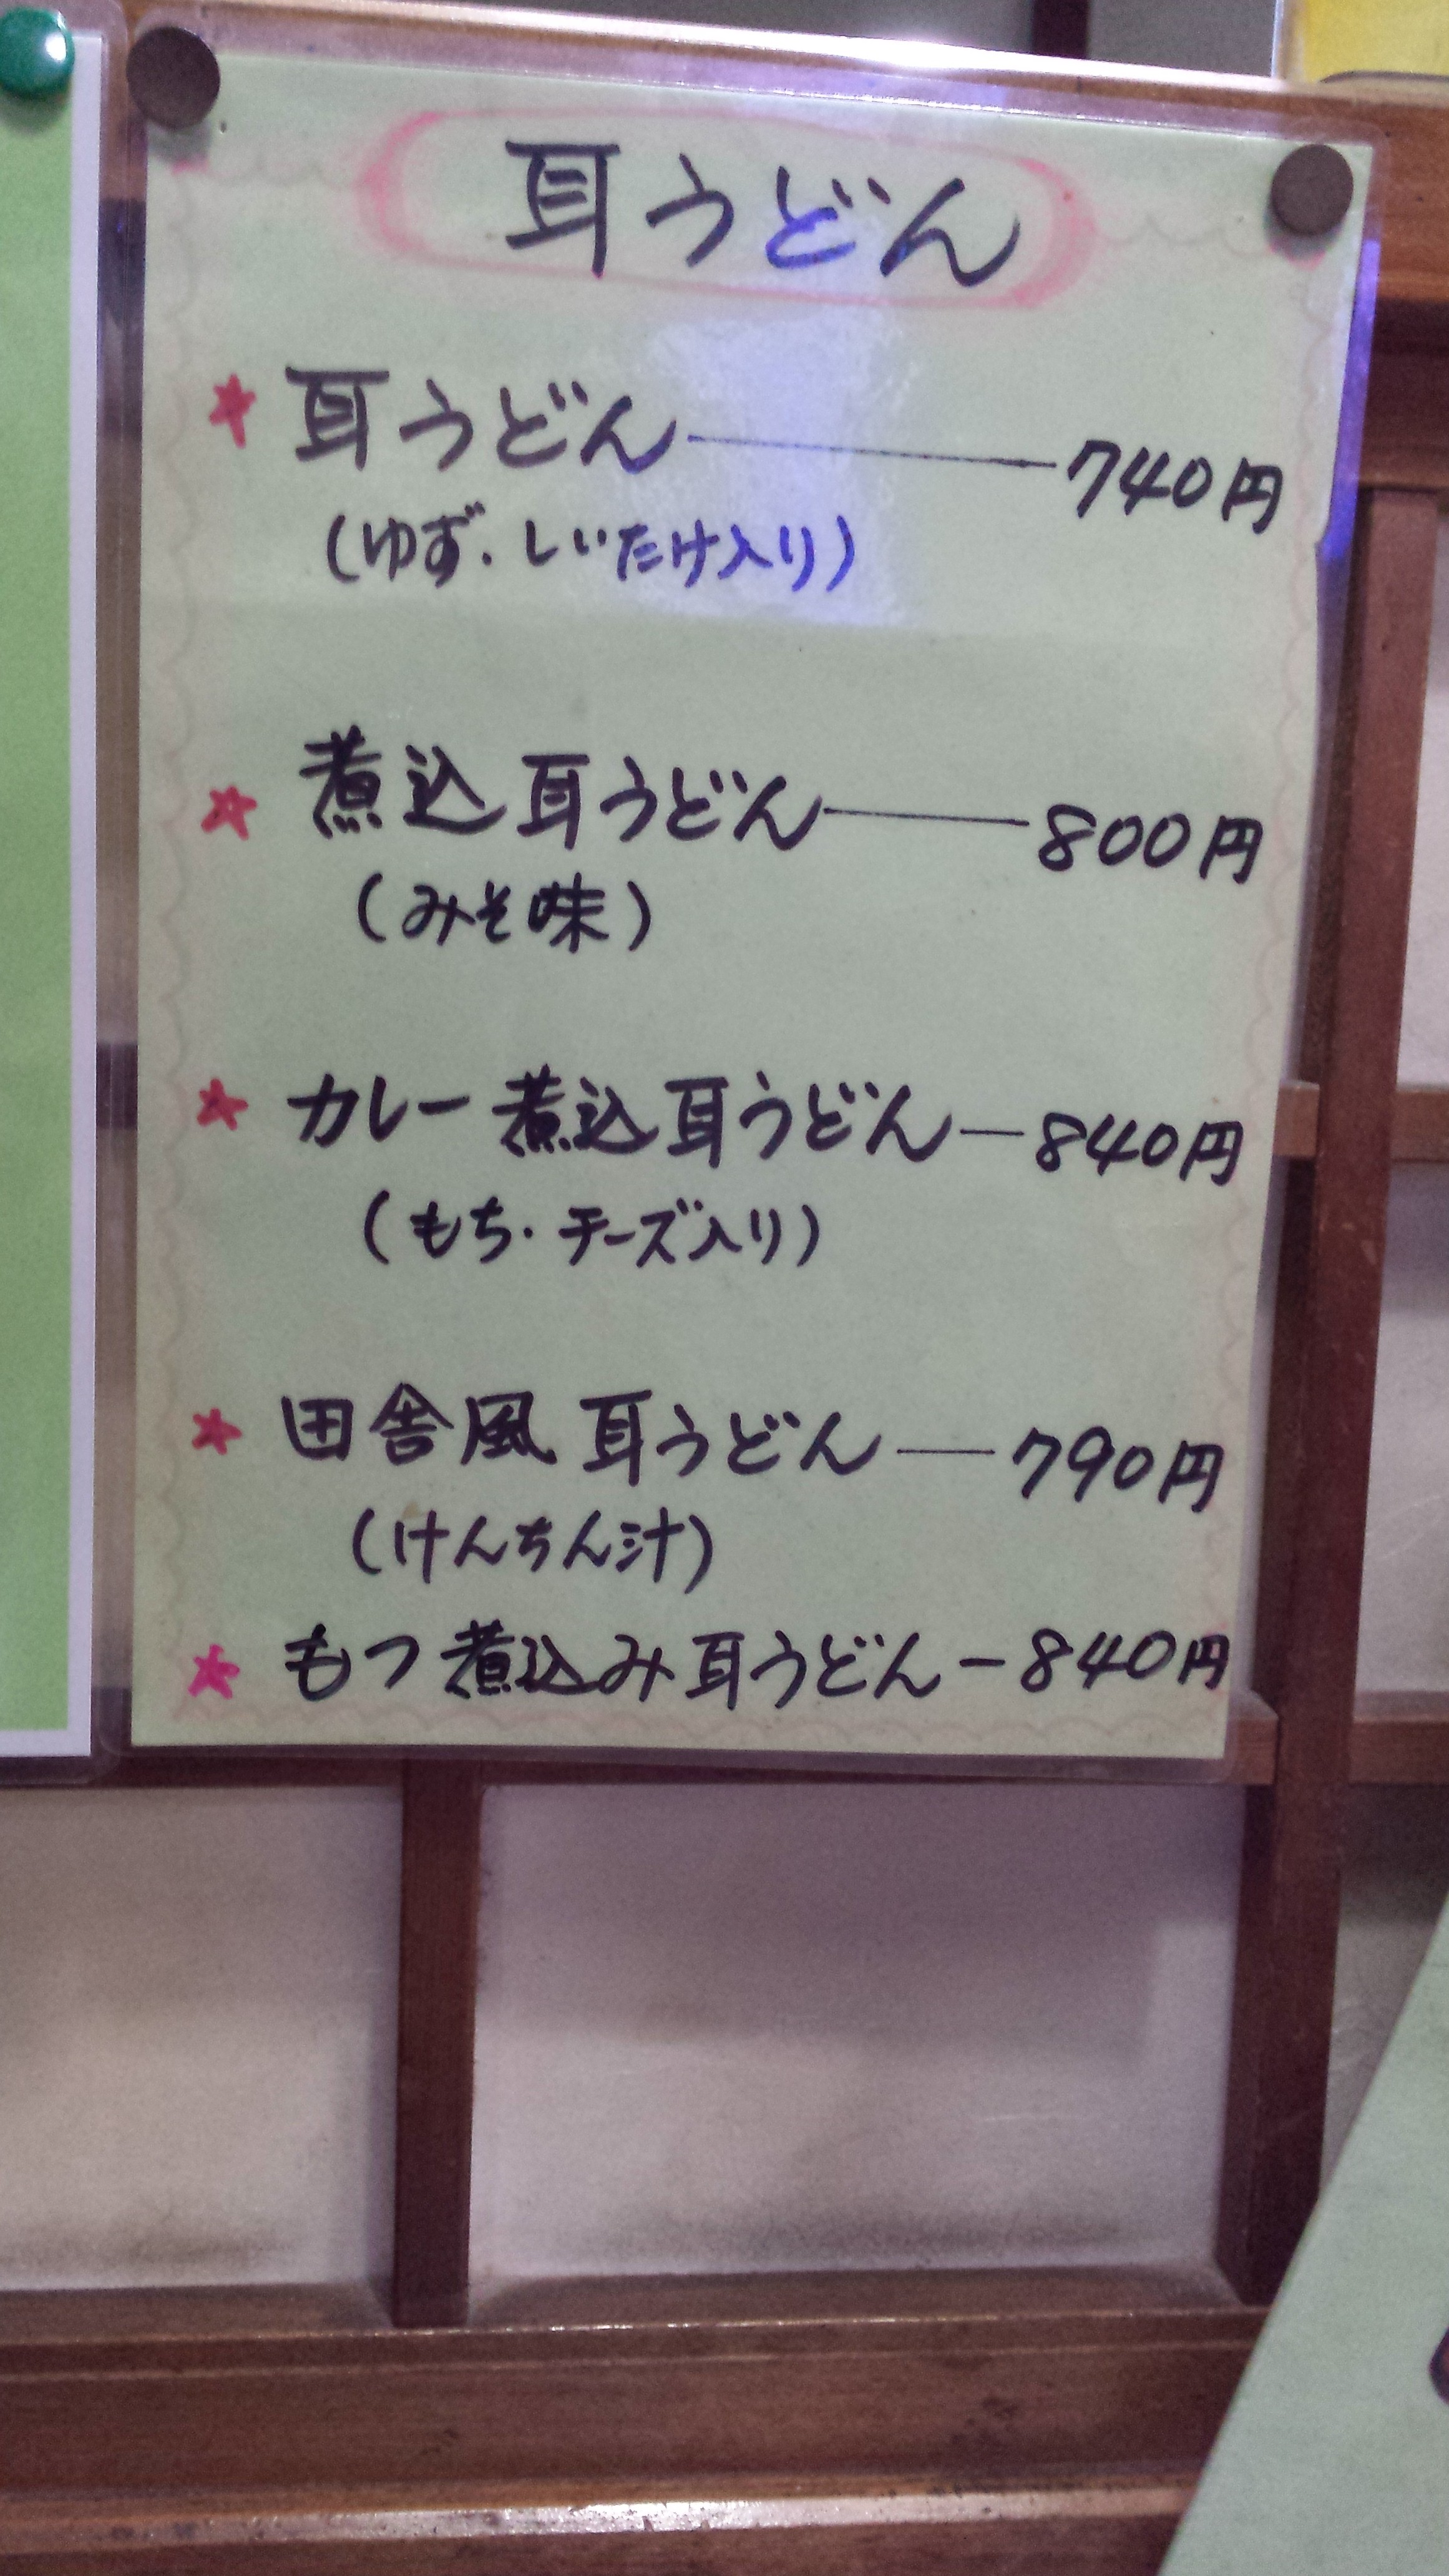 耳うどん
★ 耳うどん――740円
(ゆず・しいたけ入り)
★ 煮込耳うどん――800円
(みそ味)
★ カレー煮込耳うどん―840円
(もち・チーズ入り)
★ 田舎風耳うどん―790円
(けんちん汁)
★ もつ煮込み耳うどん―840円